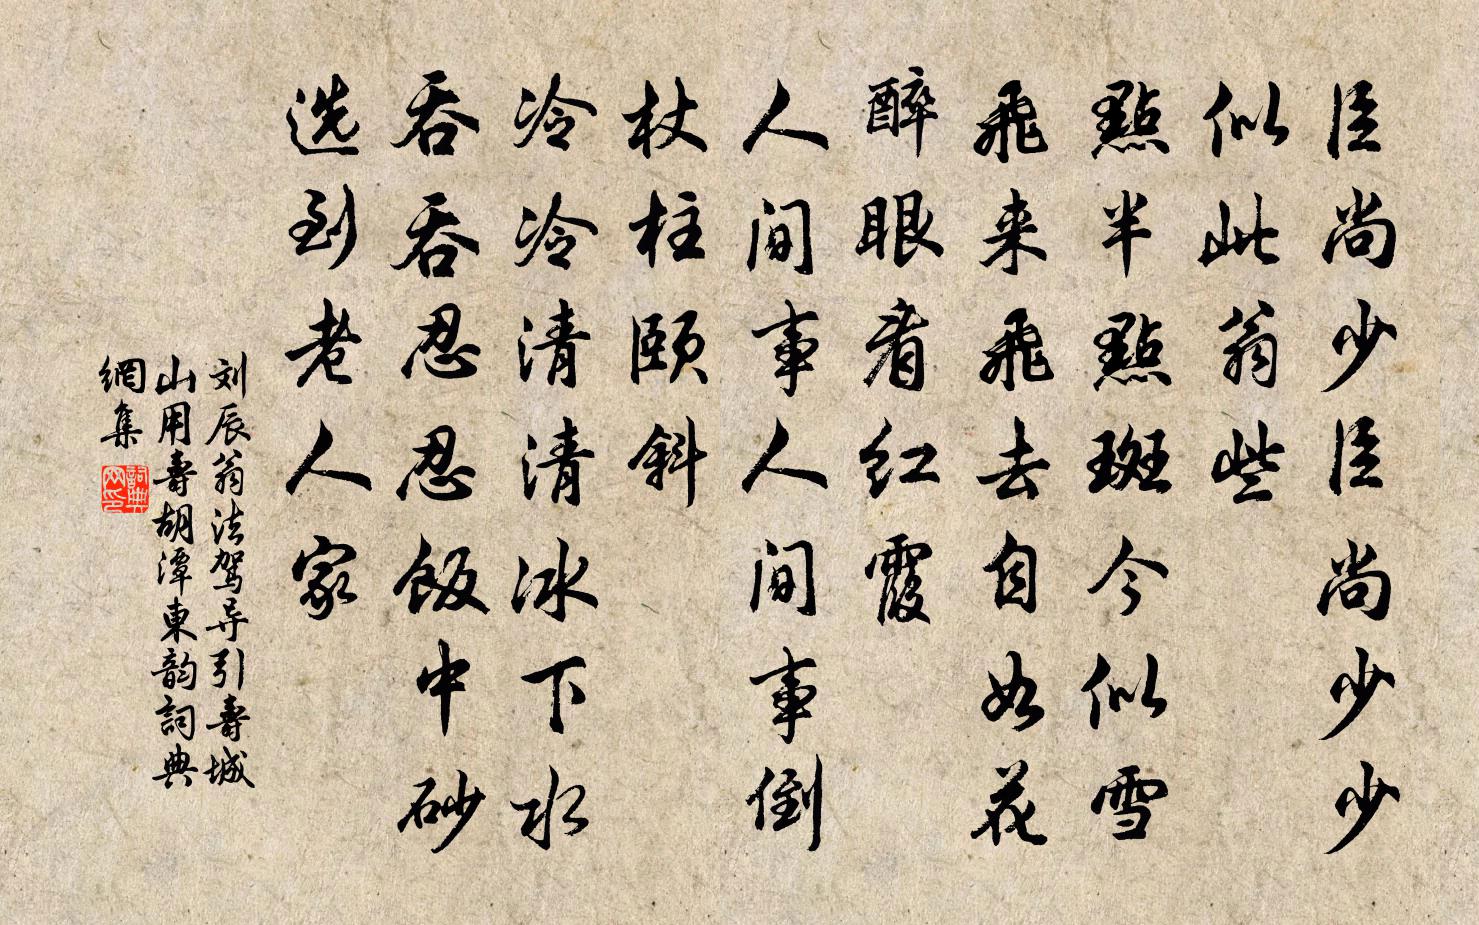 臣尚少臣尚少少
似此翁些
點半點斑今似雪
飛来飛去自如花
醉眼看红霞
人间事人间事倒
杖柱颐斜
冷冷清清冰下水
吞吞忍忍飯中砂
选到老人家
刘辰翁法驾导引壽城
山用壽胡潭東韵詞典
網集
詞典網印